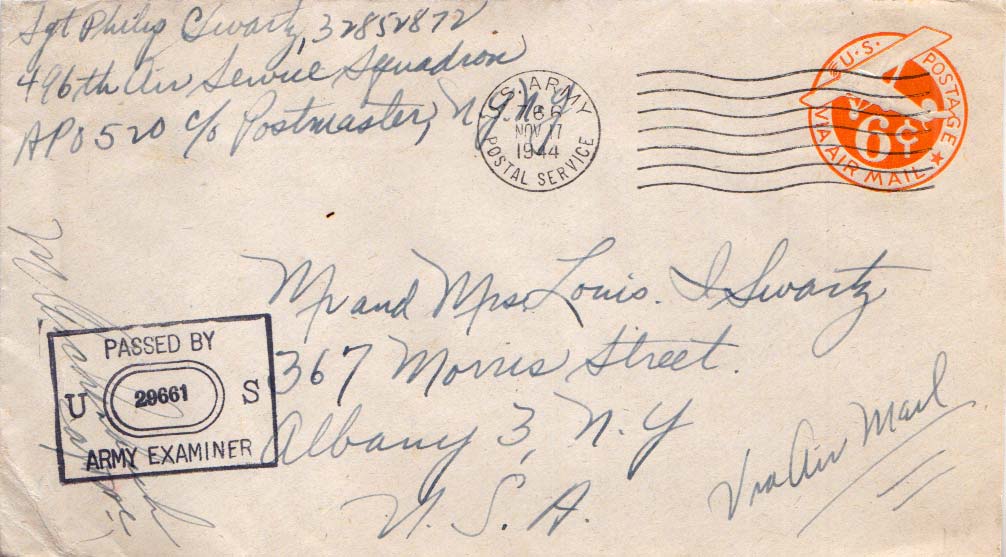 Sgt Philip C Swartz, 32852872
496th Air Service Squadron
APO 520 c/o Postmaster, N.Y. N.Y
U.S. ARMY
NOV 17
1944
POSTAL SERVICE
U.S. POSTAGE
6¢
VIA AIR MAIL
Mr and Mrs. Louis. I Swartz
367 Morris Street.
Albany 3, N.Y
U. S. A.
Via Air Mail
PASSED BY
U 29661 S
ARMY EXAMINER